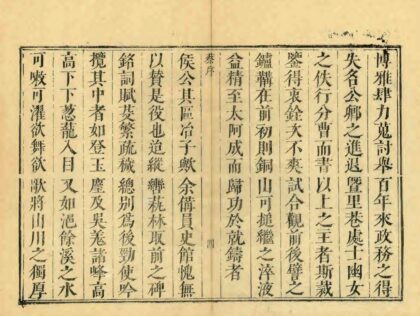 博雅肆力蒐討舉百年來政務之得
失名公卿之進退暨里巷處士幽女
之佚行分曹而書以上之王者斯裁
鑒得衷銓次不爽試合觀前後譬之
鑪鞲在前初則銅山可搥繼之淬液
益精至太阿成而歸功於就鑄者
蔡序
四
侯公其區冶子歟余備員史館愧無
以贊是役也迨縱轡藝林取前之碑
銘詞賦芟繁疏穢總別為後勁使吟
攬其中者如登玉塵及吳羗諸峰高
高下下蔥蘢入目又如浥餘溪之水
可嗽可濯欲舞欲歌將山川之獨厚